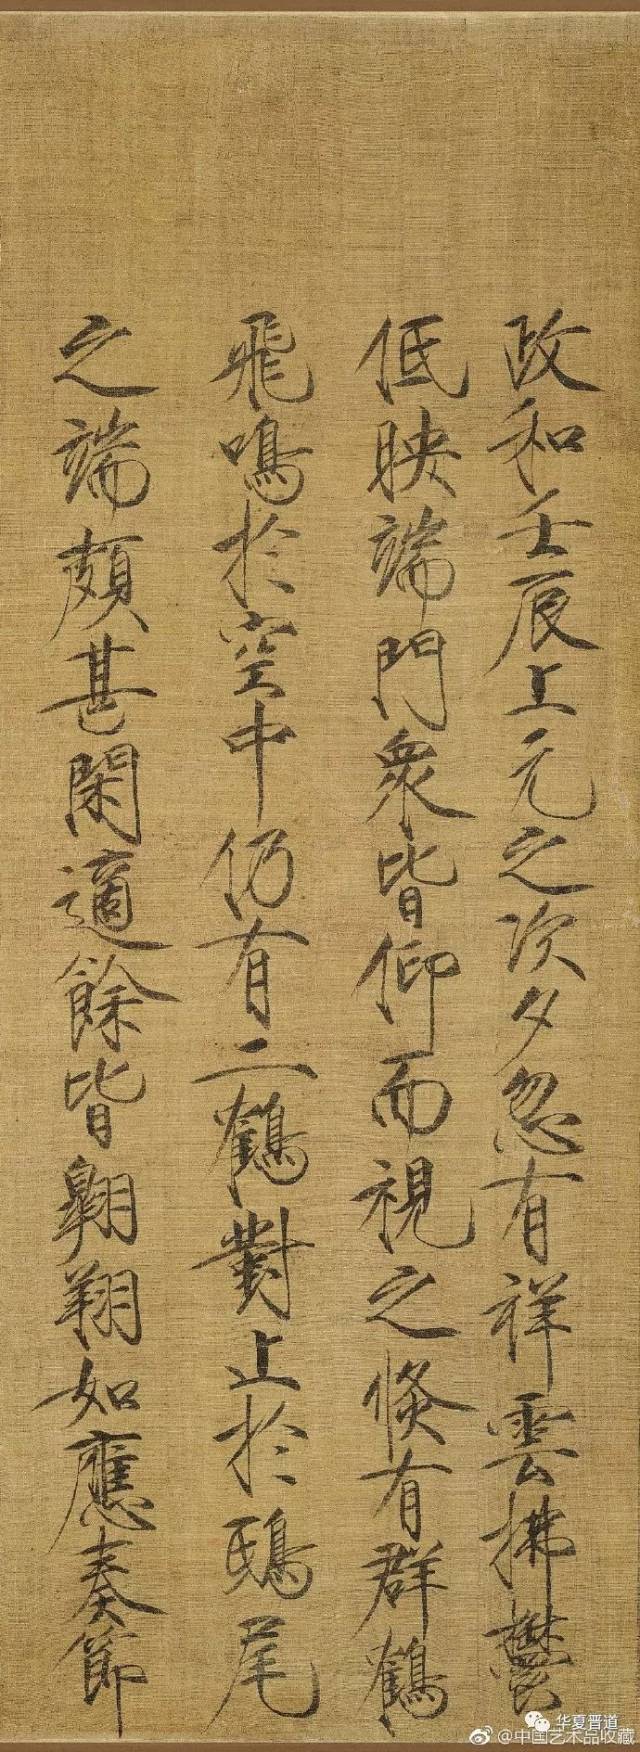 政和壬辰上元之次夕忽有祥雲拂鬱
低映端門衆皆仰而視之倐有群鶴
飛鳴於空中仍有二鶴對止於鴟尾
之端頗甚閑適餘皆翱翔如應奏節
华夏晋道
@中国艺术品收藏